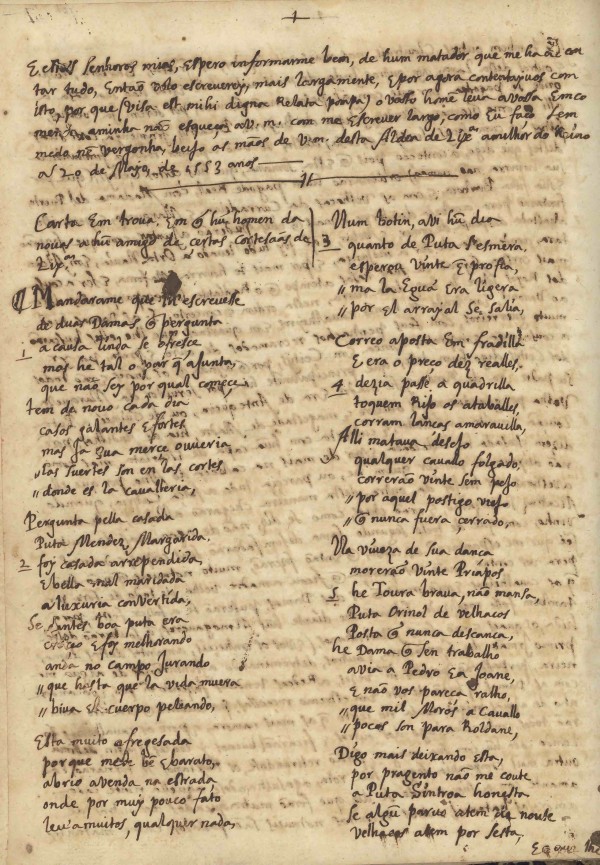 Estes senhores mios, espero informarme bem, de hum matador que me ha de con
tar tudo, Entaõ volo escreverey, mais largamente, E por agora contentayvos com
isto, por que (visa est mihi digna Relata pompa) o vosso home leva a vossa Enco
menda, a minha naõ esqueça a v. m. com me Escrever largo, como Eu faço sem
medo nẽ vergonha, beijo as mãos de v. m. desta Aldea de Lixª a melhor do Reino
a 20 de Mayo, de 1553 anos
Carta Em trova, Em q̃ hũ homen da
novas a hũ amigo de certas cortesaãs de
Lixª
Mandarame que lh'escrevesse
de duas Damas q̃ pergunta
1 a causa linda se ofresce
mas he tal o par q̃ ajunta,
que naõ sey por qual comece
tem de novo cada dia
casos galantes E fortes
mas Ja sua merce ouviria
,, las suertes son en las cortes
,, donde es la cavalleria,
Pergunta pella casada
Puta Mendez Margarida,
2 foy casada arrependida,
E bella mal maridada
a luxuria convertida,
Se dantes boa puta era
E foy melhorando
anda no campo Jurando
,, que hasta que la vida muera
,, biva el cuerpo peleando,
Esta muito afregesada
porque mede bẽ E barato,
abrio a venda na estrada
onde por muy pouco fato
leva muitos, qualquer nada,
Num botin, a vi hũ dia
3 quanto de Puta s'esmera
esperar vinte ẽ profia,
,, ma la Egua Era ligera
,, por el arrayal se salia,
Correo aposta Em fradilla
E era o preço dez realles,
4 dezia passe a quadrilla
toquem Rijo os ataballes,
corram lanças a maravilla,
Alli matava desejo
qualquer cavallo folgado,
correraõ vinte sem pejo
,, por aquel postigo viejo
,, q̃ nunca fuera çerrado,
Na viveza de sua dança
moreraõ vinte Priapos
5 he Toura brava, naõ mansa,
Puta Orinol de velhacos
Posta q̃ nunca descança,
he Dama q̃ sen trabalho
avia a Pedro E a Joane,
E naõ vos pareça ralho,
,, que mil Moros a Cavallo
,, pocos son para Roldane,
Digo mais deixando esta,
por pragento naõ me conte
a Puta Sintroa honesta
se algũ parvo a tem de noute
velhacos a tem por sesta,